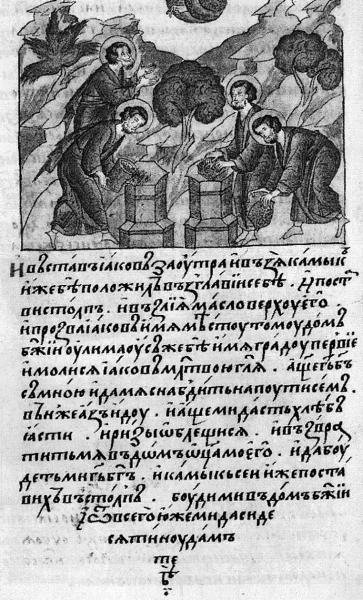 И въставъ іаковъ заоутра и въꙁѧ камыкъ
иже бѣ положилъ въꙁглавїи себѣ . и пост
ви столпъ . и въꙁлїѧ масло верхоу его
и проꙁва іаковъ имѧ мѣстоу томоу домъ
бж҃їи оулимаоусъ же бѣ имѧ градоу первїе
и молисѧ іаковъ мл҃твою гл҃ѧ . аще г҃ь бъ
съ мною и дамѧ снабдить на поути семъ
въ нже аꙁъ идоу . и аще ми дасть хлѣбъ
ꙗсти . и риꙁы ѡблещисѧ . и въꙁвра
тить мѧ въ домъ ѡц҃а моего . и да боу
деть ми г҃ь б҃гъ . и камыкъ сеи иже поста
вихъ въ столпъ . боуди ми въ домъ бж҃їи
ѿ всего юже ми даси де
сѧтиноу дамъ
те
бѣ